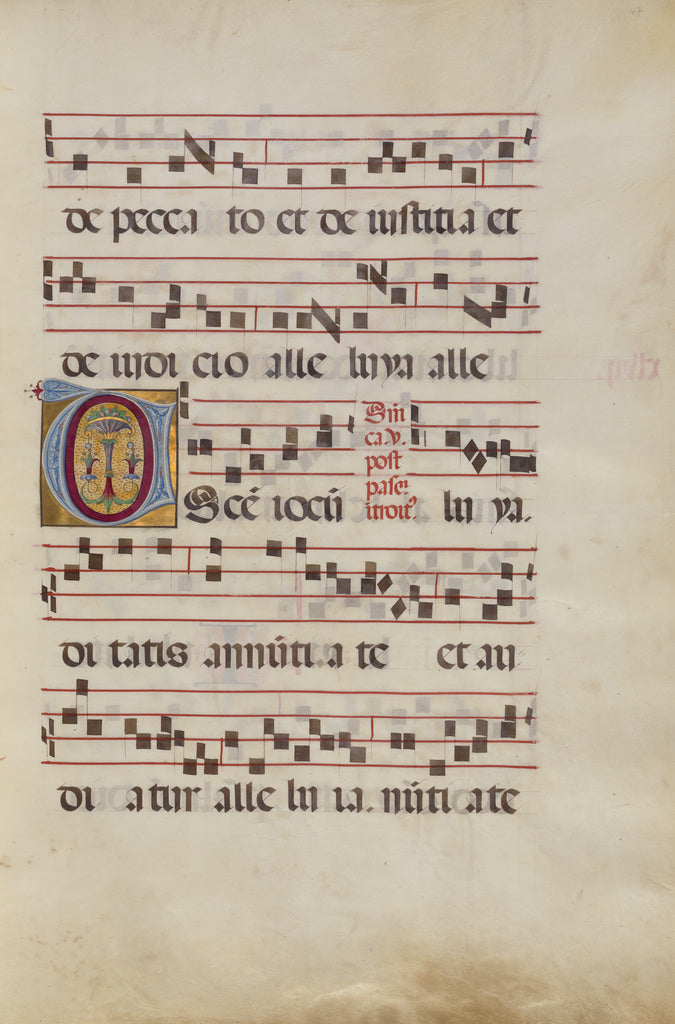 de pecca to et de iustitia et
de iudi cio alle luya alle
VOcē iocū
Dn̄i
ca.v.
post
pasc̄
itroit9
lu ya.
di tatis annūti.a te et au
di atur alle lu ia. nūti ate